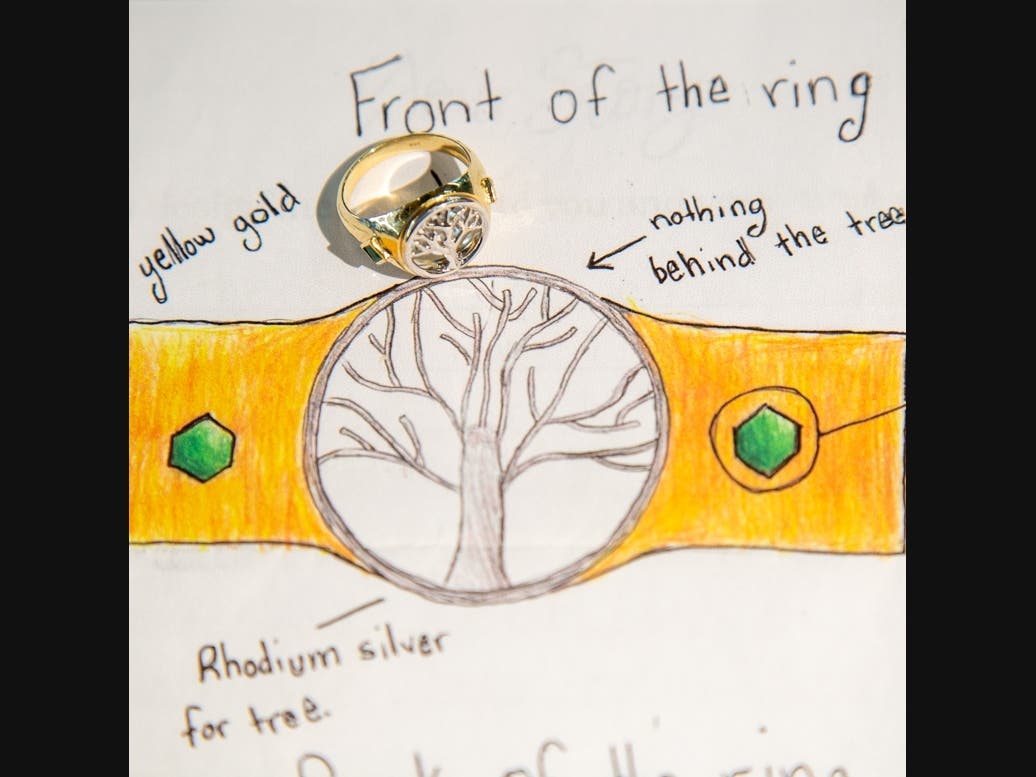 Front of the ring
yellow gold
nothing
behind the tree
Rhodium silver
for tree.
of the ring